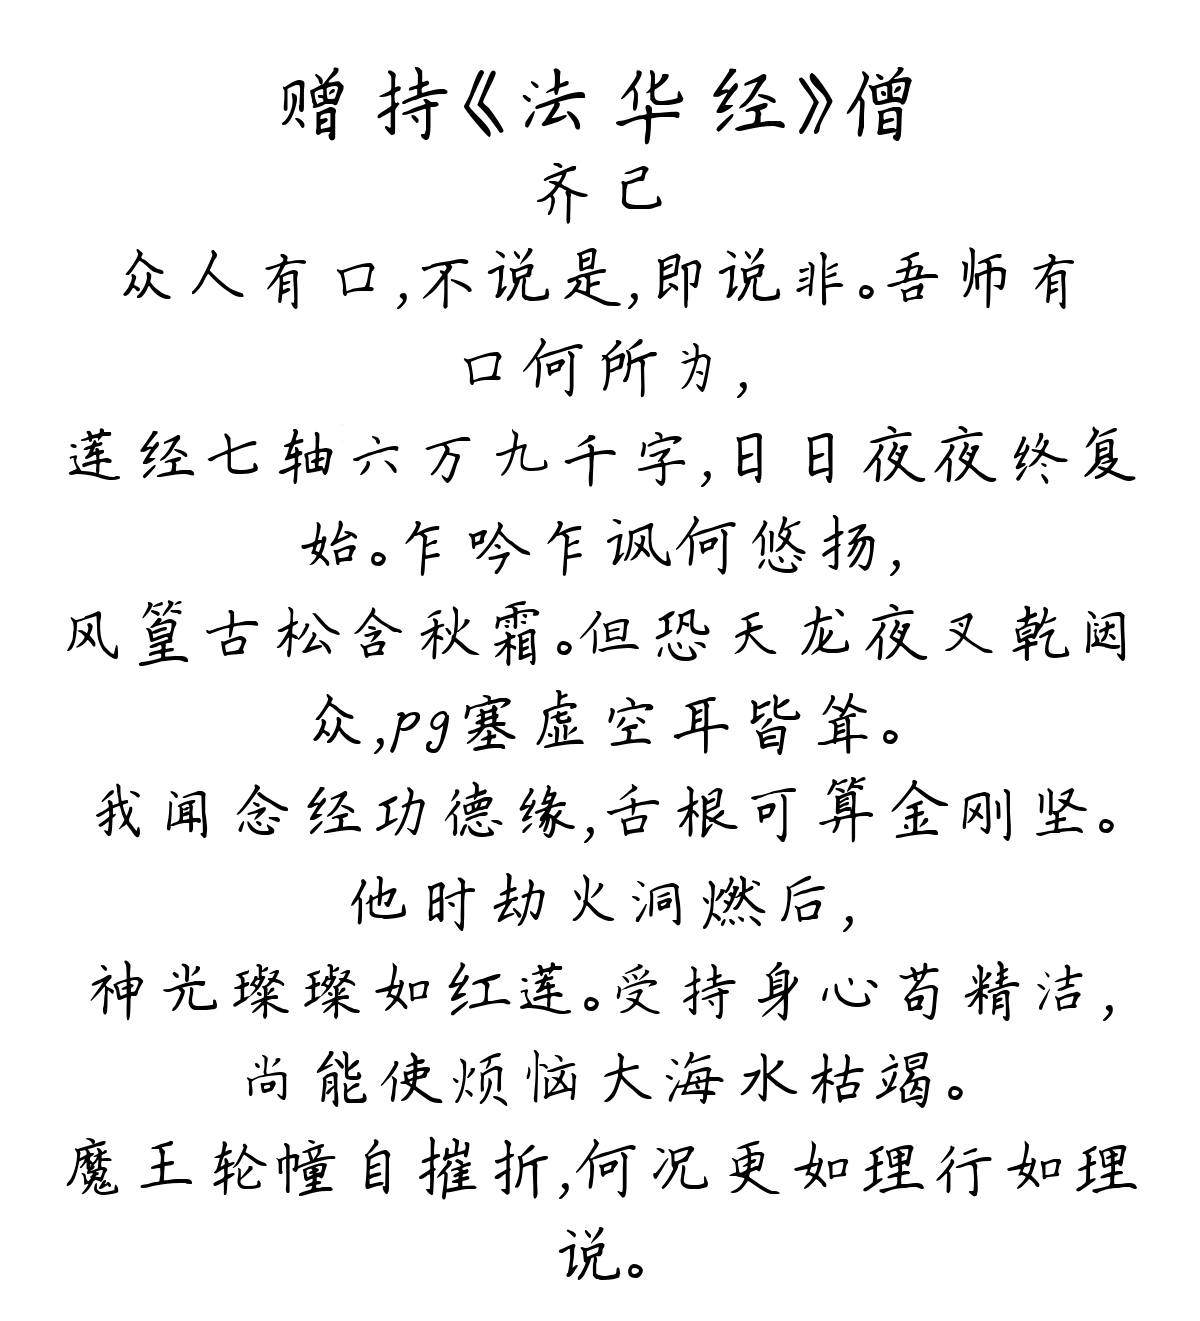 赠持《法华经》僧
齐己
众人有口,不说是,即说非。吾师有
口何所为,
莲经七轴六万九千字,日日夜夜终复
始。乍吟乍讽何悠扬,
风篁古松含秋霜。但恐天龙夜叉乾闼
众,pg塞虚空耳皆耸。
我闻念经功德缘,舌根可算金刚坚。
他时劫火洞燃后,
神光璨璨如红莲。受持身心苟精洁,
尚能使烦恼大海水枯竭。
魔王轮幢自摧折,何况更如理行如理
说。